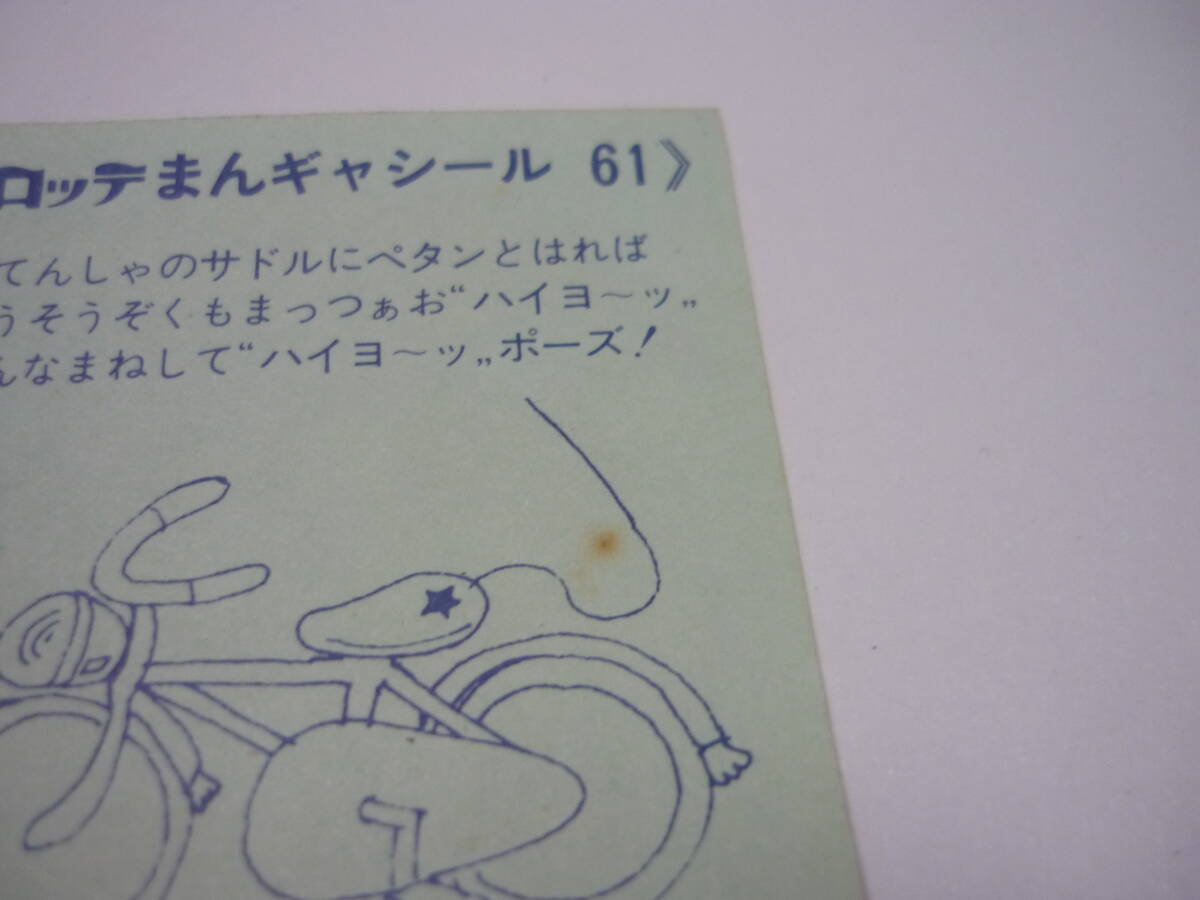 ロッテまんギャシール 61》
てんしゃのサドルにペタンとはれば
うそうぞくもまっつぁお“ハイヨ〜ッ„
んなまねして“ハイヨ〜ッ„ポーズ!